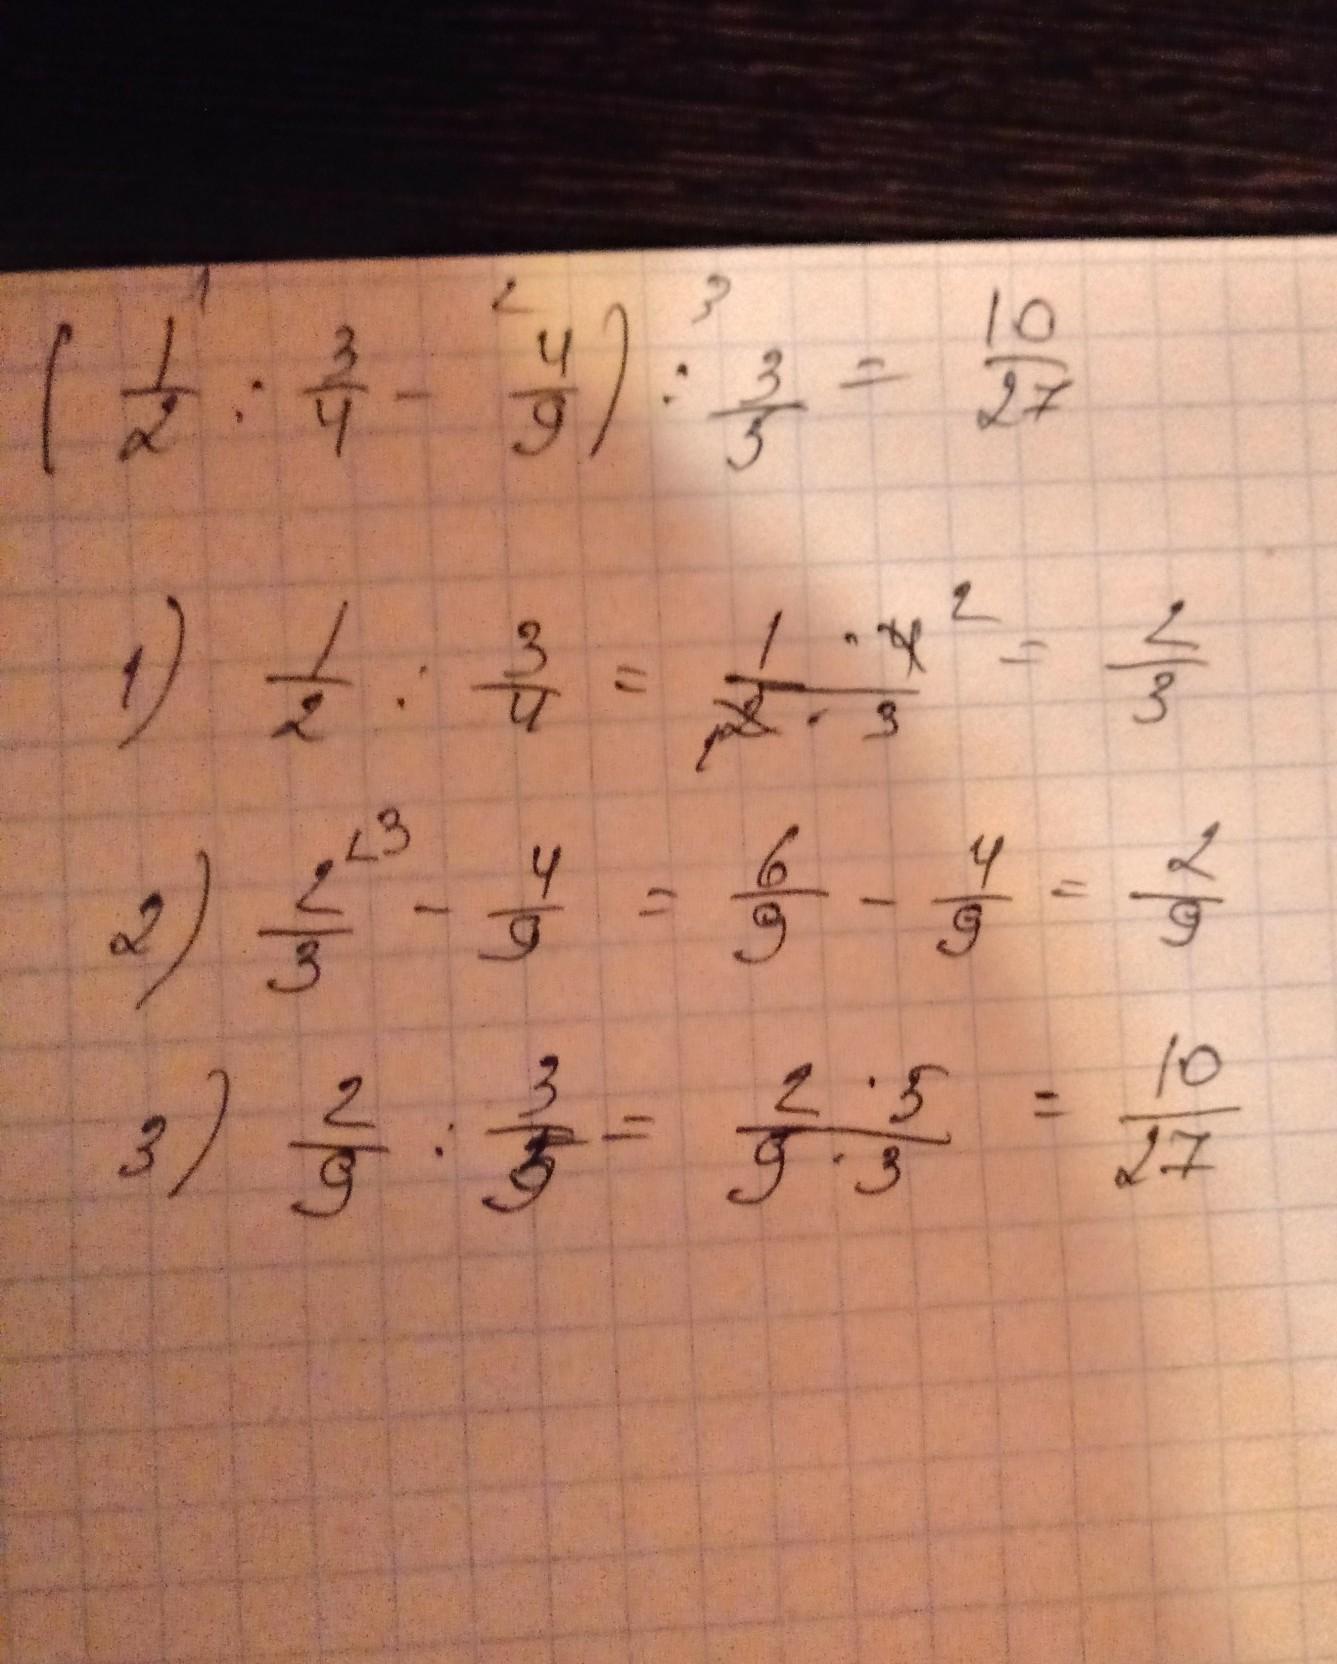 (1/2 : 3/4 - 4/9) : 3/5 = 10/27
1) 1/2 : 3/4 = 1·4/2·3 = 2/3
2) 2/3 - 4/9 = 6/9 - 4/9 = 2/9
3) 2/9 : 3/5 = 2·5/9·3 = 10/27